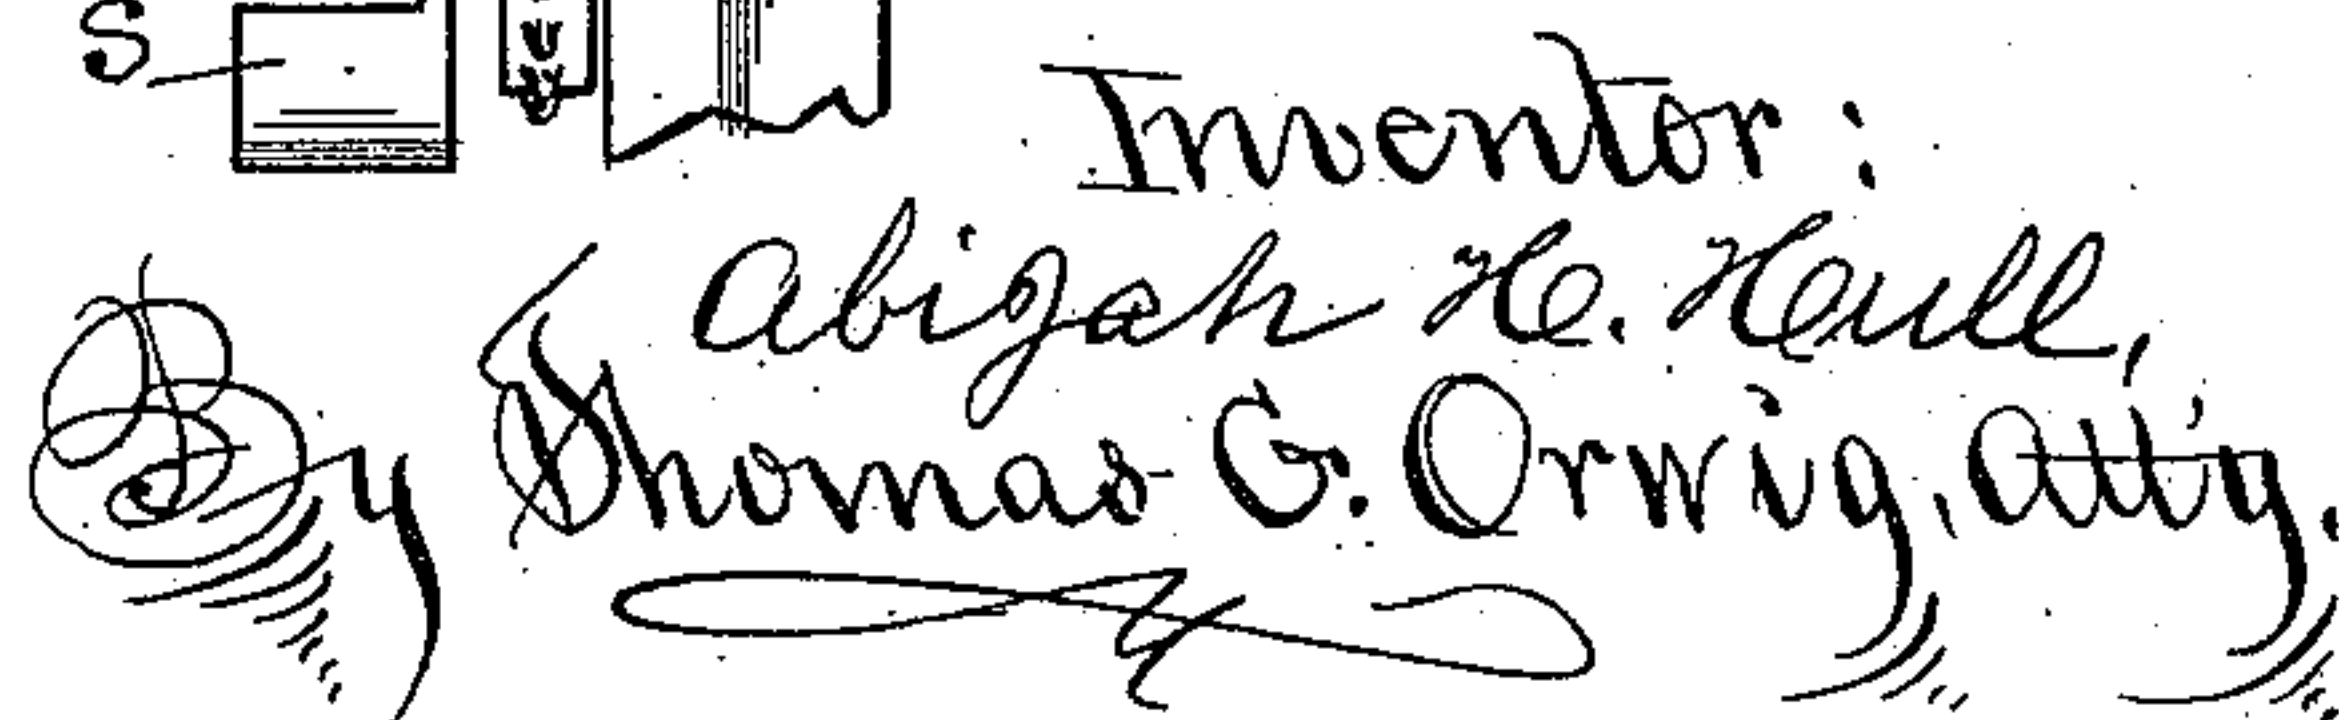 S
Inventor:
Abijah H. Hull,
By Thomas G. Orwig, Att'y.